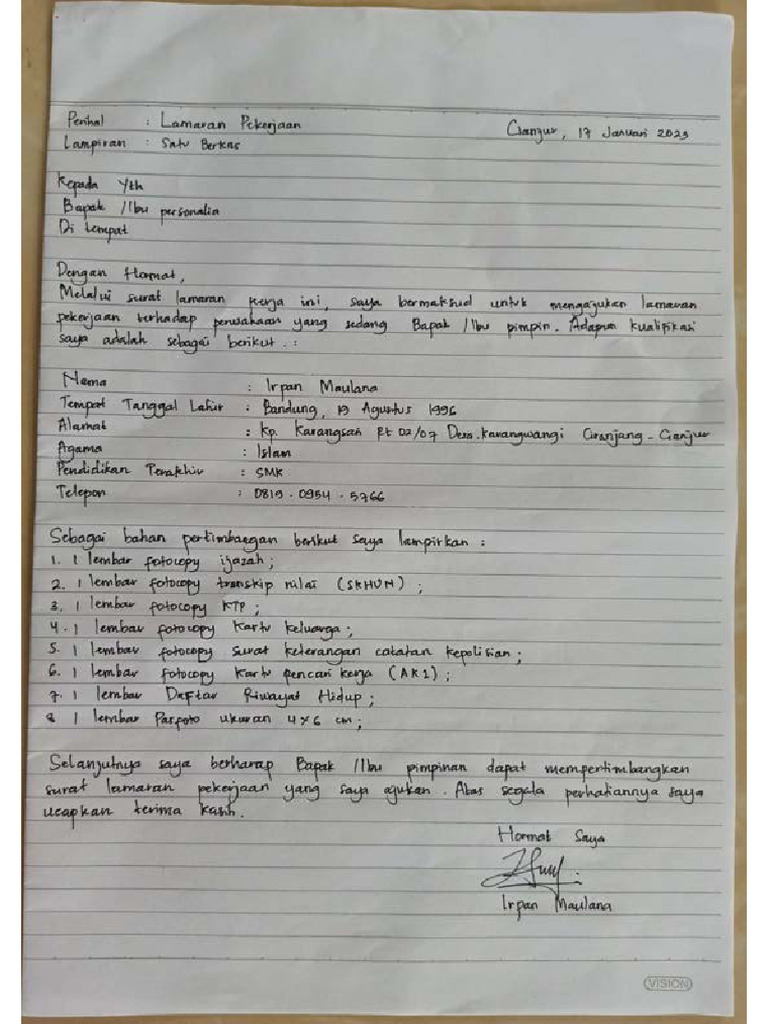 Perihal : Lamaran Pekerjaan
Cianjur, 17 Januari 2023
Lampiran : Satu Berkas
Kepada Yth
Bapak /Ibu personalia
Di tempat
Dengan Hormat,
Melalui surat lamaran kerja ini, saya bermaksud untuk mengajukan lamaran
pekerjaan terhadap perusahaan yang sedang Bapak /Ibu pimpin. Adapun kualifikasi
saya adalah sebagai berikut . :
Nama : Irpan Maulana
Tempat Tanggal Lahir : Bandung, 19 Agustus 1996
Alamat : Kp. Karangsari Rt 02/07 Desa.Karangwangi Ciranjang - Cianjur
Agama : Islam
Pendidikan Terakhir : SMK
Telepon : 0819 . 0954 . 5766
Sebagai bahan pertimbangan berikut saya lampirkan :
1. 1 lembar fotocopy ijazah ;
2. 1 lembar fotocopy transkip nilai (SKHUN) ;
3. 1 lembar fotocopy KTP ;
4. 1 lembar fotocopy Kartu Keluarga ;
5. 1 lembar fotocopy surat keterangan catatan kepolisian ;
6. 1 lembar fotocopy Kartu pencari kerja (AK1) ;
7. 1 lembar Daftar Riwayat Hidup ;
8 1 lembar Pasfoto ukuran 4x6 cm ;
Selanjutnya saya berharap Bapak /Ibu pimpinan dapat mempertimbangkan
surat lamaran pekerjaan yang saya ajukan . Atas segala perhatiannya saya
ucapkan terima kasih.
Hormat Saya
Irpan Maulana
VISION